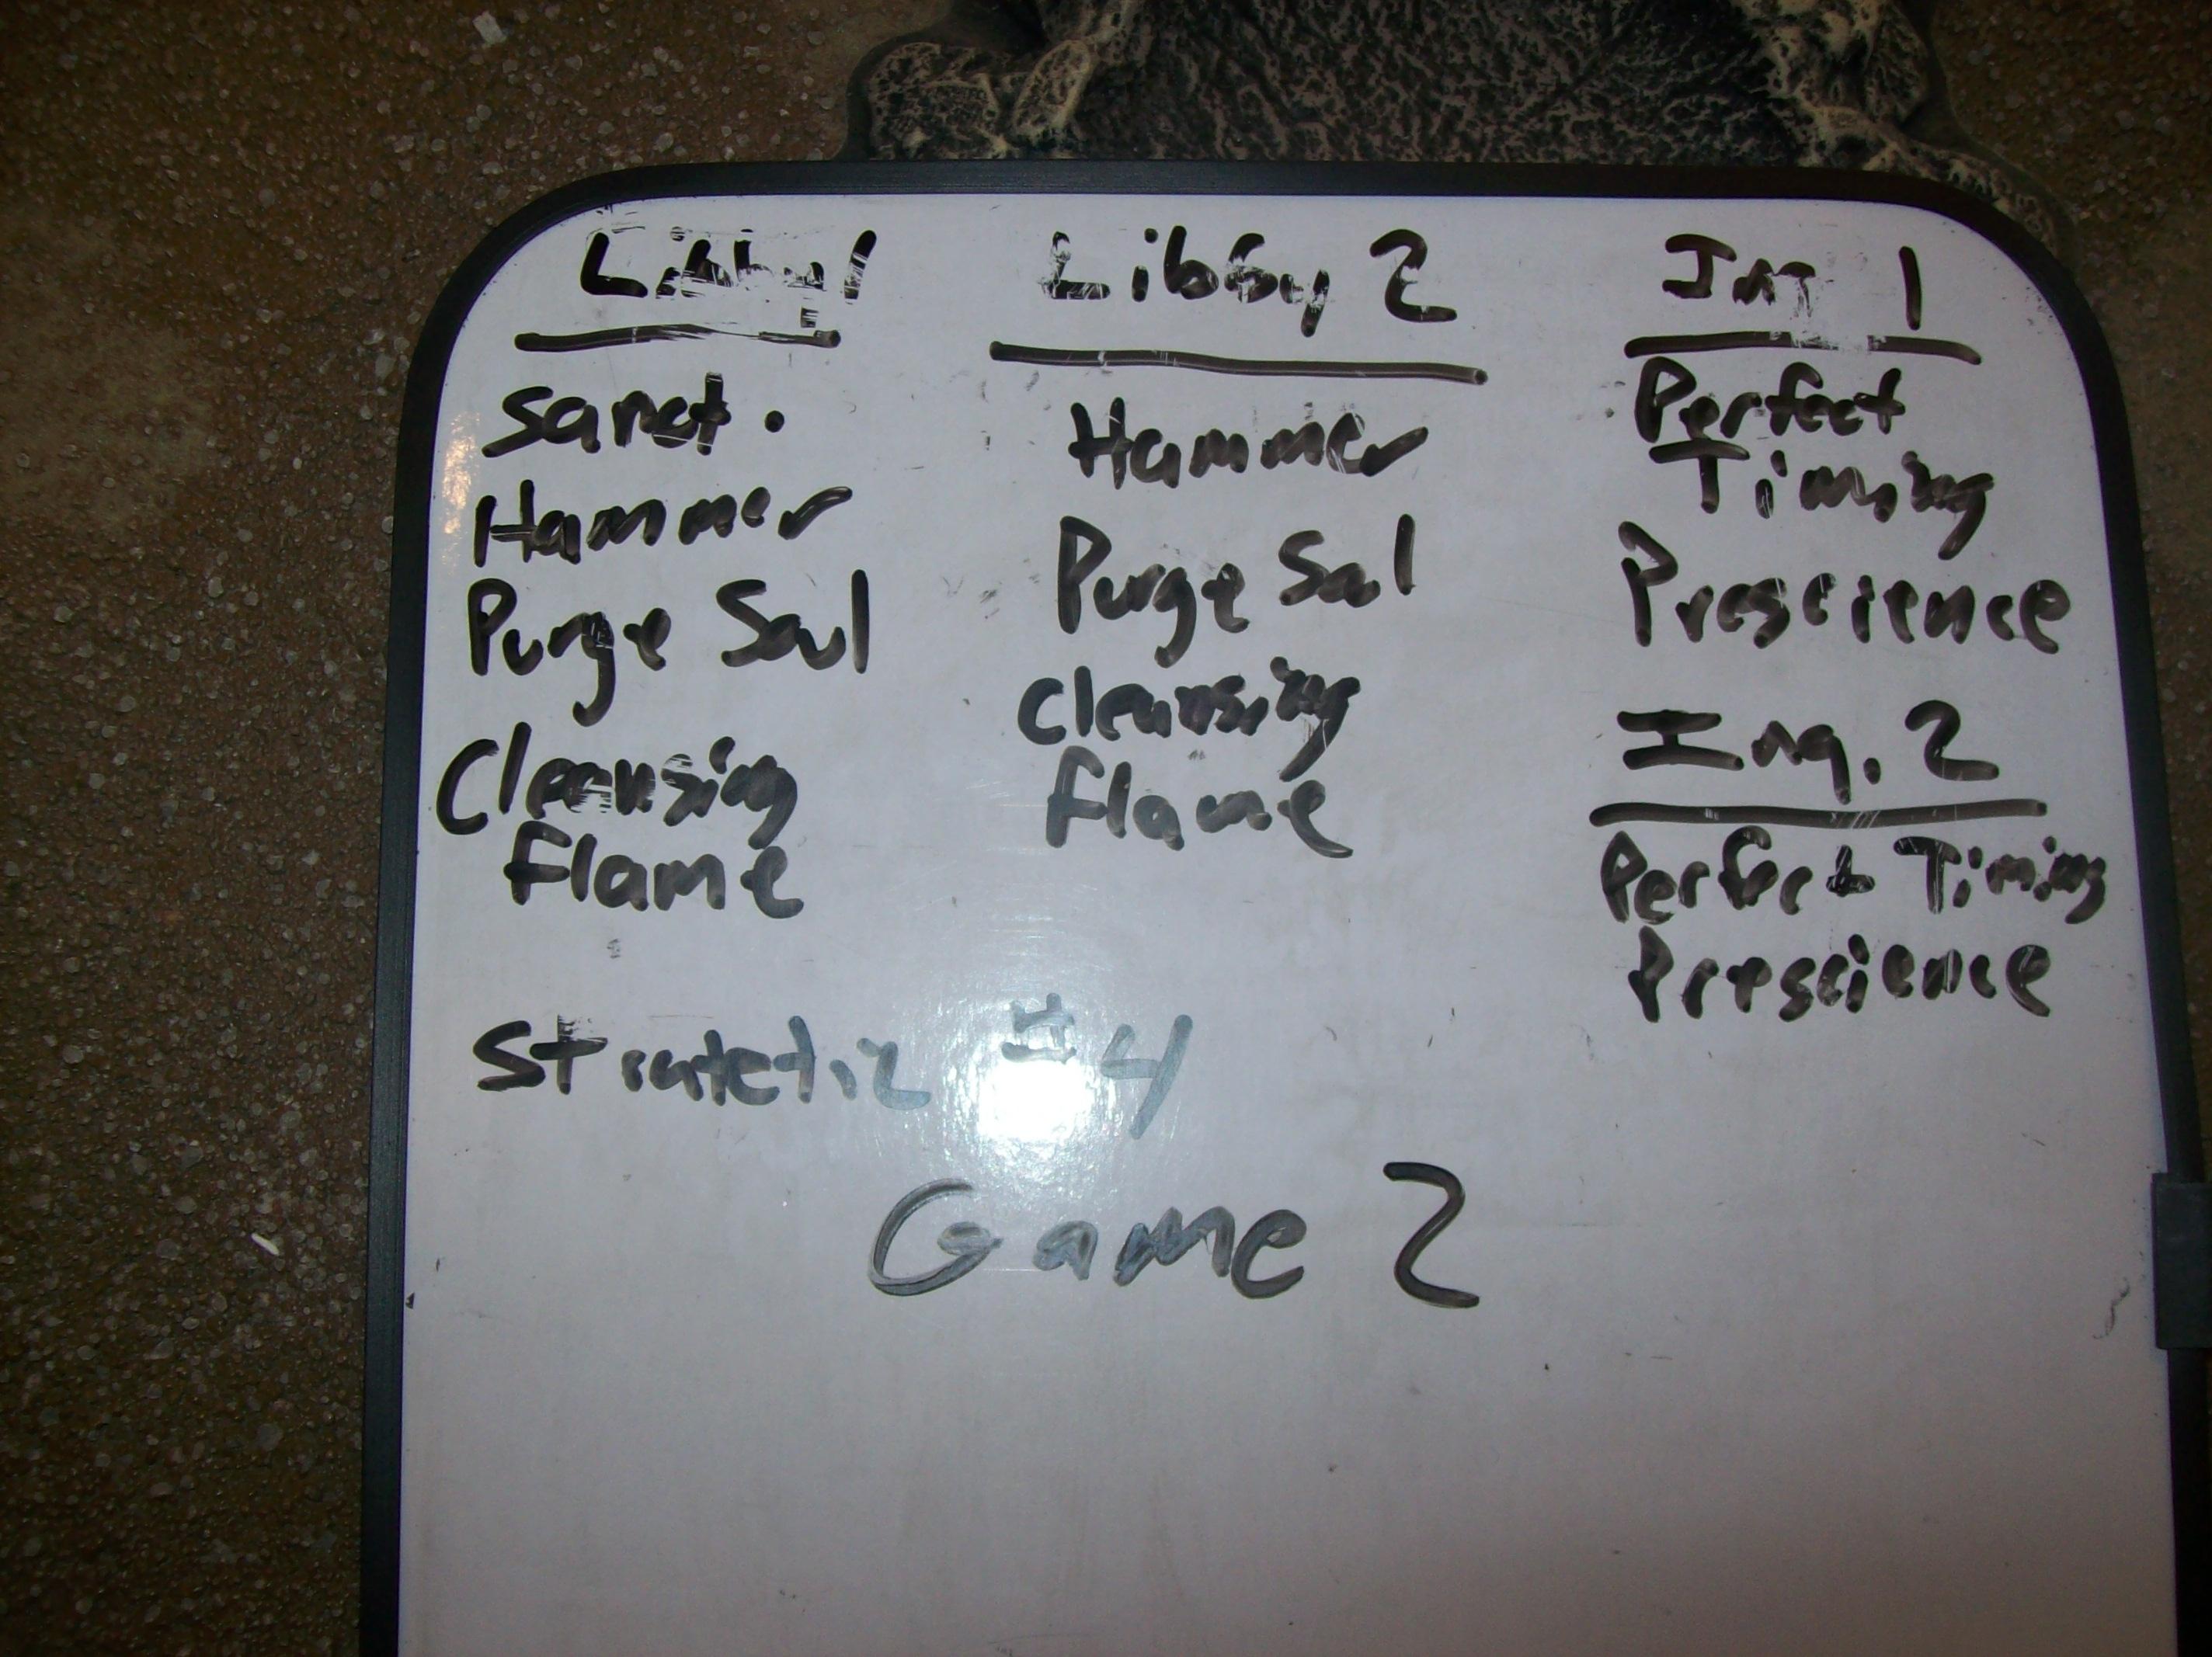 Libby 1
Sanct.
Hammer
Purge Soul
Cleansing
flame
Libby 2
Hammer
Purge Soul
Cleansing
flame
Inq 1
Perfect
Timing
Prescience
Inq. 2
Perfect Timing
Prescience
#4
Game 2